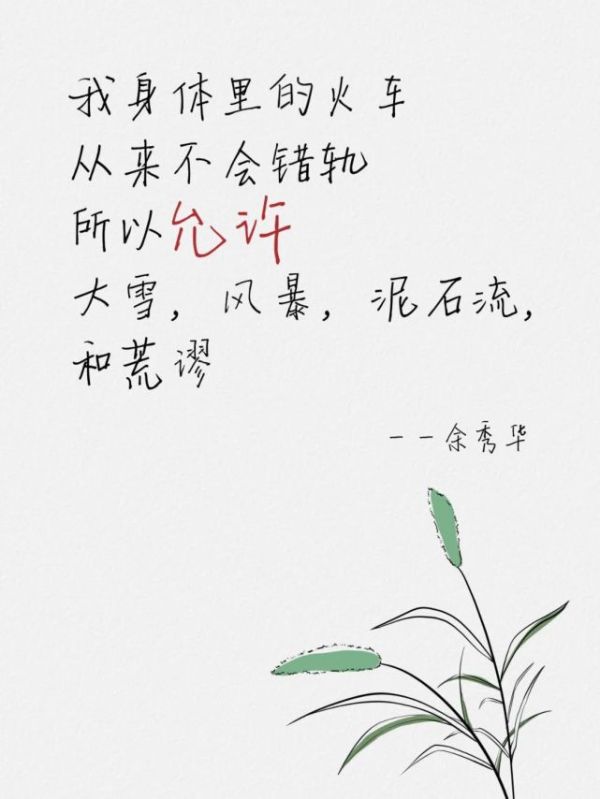 我身体里的火车
从来不会错轨
所以允许
大雪，风暴，泥石流，
和荒谬
——余秀华